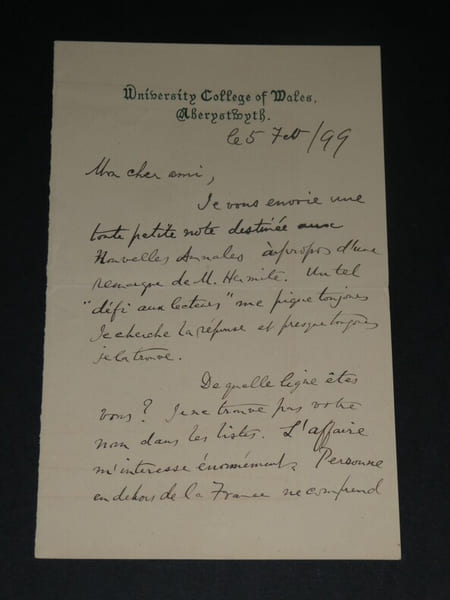 University College of Wales,
Aberystwyth.
le 5 Feb/99
Mon cher ami,
Je vous envoie une
toute petite note destinée aux
Nouvelles Annales àpropos d'une
remarque de M. Hermite. Un tel
"défi aux lecteurs" me pique toujours
Je cherche la réponse et presque toujours
je la trouve.
De quelle ligue êtes
vous? Je ne trouve pas votre
nom dans les listes. L'affaire
m'interesse énormément. Personne
en dehors de la France ne comprend